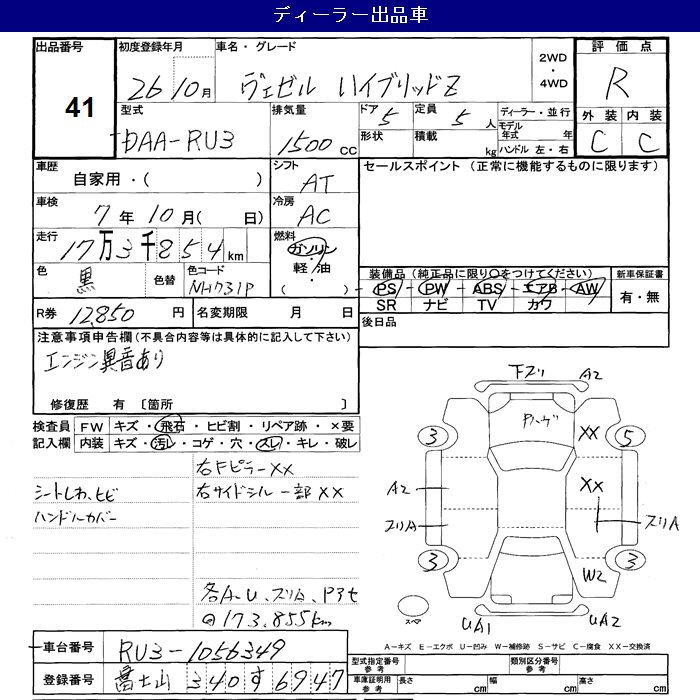 ディーラー出品車
出品番号 初度登録年月 車名・グレード 評価点
41 26 10月 ヴェゼル ハイブリッドZ 2WD・4WD R
型式 排気量 ドア 定員 ディーラー・並行 外装 内装
DAA-RU3 1500 CC 5 5人 モデル年式 年 C C
形状 積載 kg ハンドル 左・右
車歴 シフト セールスポイント (正常に機能するものに限ります)
自家用・( ) AT
車検 冷房
7年10月( 日) AC
走行 燃料
17万3千854km ガソリン・軽油 ( )
色 色替 色コード 装備品 (純正品に限り○をつけてください) 新車保証書
黒 NH731P PS - PW - ABS - エアB - AW 有・無
SR ナビ TV カワ
R券 12,850円 名変期限 月 日 後日品
注意事項申告欄 (不具合内容等は具体的に記入して下さい)
エンジン異音あり
修復歴 有 〔箇所 〕
検査員 FW キズ・飛石・ヒビ割・リペア跡・×要
記入欄 内装 キズ・汚レ・コゲ・穴・スレ・キレ・破レ
右Fピラーxx
シートしわ、ヒビ 右サイドシル一部xx
ハンドルカバー
各A.U、スリA、Pアセ
173,855km
下ズリ A2
Pハゲ
3 XX 5
A2 XX
スリA スリA
3 W2 3
スペア UA1 UA2
A-キズ E-エクボ U-凹み W-補修跡 S-サビ C-腐食 XX-交換済
車台番号 RU3-1056349
登録番号 富士山 340 す 6947
型式指定番号 参考 類別区分番号 参考
車庫証明用 参考 長さ cm 幅 cm 高さ cm